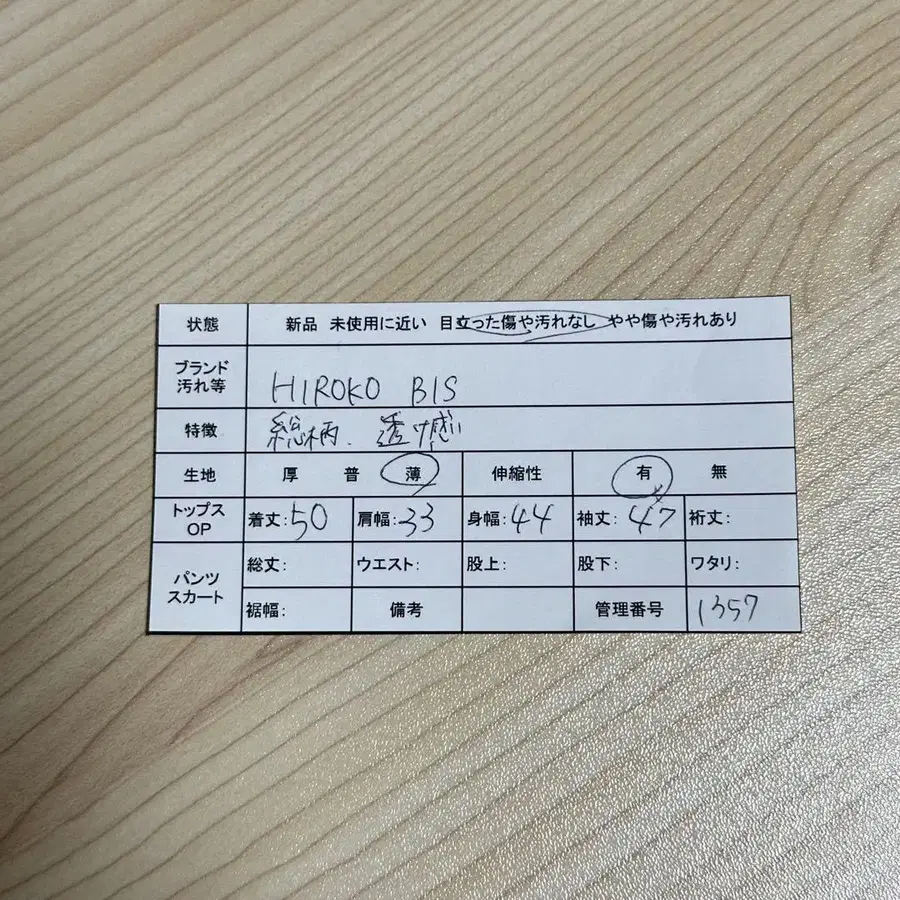 状態 新品 未使用に近い 目立った傷や汚れなし やや傷や汚れあり
ブランド
汚れ等 HIROKO BIS
特徴 総柄、透け感
生地 厚 普 薄 伸縮性 有 無
トップス
OP 着丈:50 肩幅:33 身幅:44 袖丈:47 裄丈:
パンツ
スカート 総丈: ウエスト: 股上: 股下: ワタリ:
裾幅: 備考 管理番号 1357